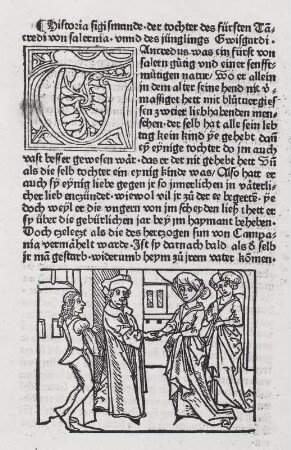 ¶ Historia sigismunde · der tochter des fürsten Tā
credi von salernia · vnnd des jünglings Gwisgardi ·
TAncredus was ein fürst von
salern gütig vnd einer senfft-
mütigen natur / Wo er allein
in dem alter seine hend nit v̄
masiget hett mit blůtuergies
sen zweier liebhabenden men-
schen · der selb hat all sein leb
tag kein kind ye gehebt dañ
sy eynige tochter do jm auch
vast besser gewesen wär · das er der nit gehebt hett Uñ
als die selb tochter ein eynig kind was / Also hatt er
auch sy eynig liebe gegen jr so jnnerlichen in väterli-
cher lieb enzündet · wiewol vil jr zů der ee begertē · ye
doch weyl er die vngern von jm scheyden ließ hett er
sy über die gebürlichen jar bey jm haymant behebt ·
Doch zeletzt als die des hertzogen sun von Campa
nia vermähelt warde · Ist sy darnach bald als ď selb
je mañ gestarb · widerumb heym zů jrem vater kōmen ·